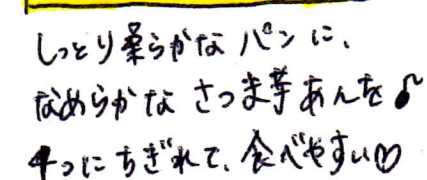 しっとり柔らかなパンに、
なめらかなさつま芋あんを♪
4つにちぎれて、食べやすい♡